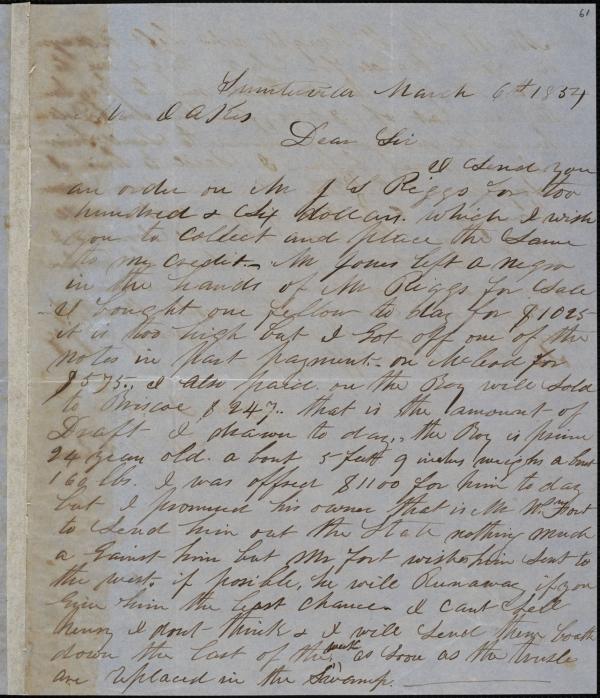 61
Sumterville March 6th 1854
Mr Oakes
Dear Sir
I Send you
an order on Mr J S Riggs for too
hundred & Six dollars. which I wish
you to Collect and place the Same
to my Credit. Mr Jones left a negro
in the hands of Mr Riggs for Sale
I bought one fellow to day for $1025
it is too high but I Got off one of the
notes in part payment. on McLeod for
$575., I also paid on the Boy will Sold
to Briscoe $247.. that is the amount of
Draft I drawn to day., the Boy is prime
24 year old. a bout 5 feet 9 inches weighs a bout
160 lbs. I was offred $1100 for him to day
but I promised his owner that is Mr Wm Fort
to Send him out the State nothing much
a Gainst him but Mr Fort wishes him Sent to
the west, if posible, he will Runaway if you
Give him the least chance I Cant Sell
Henry I dont think & I will Send them boath
down the last of the week as Soon as the trusle
are replaced in the Swamp.